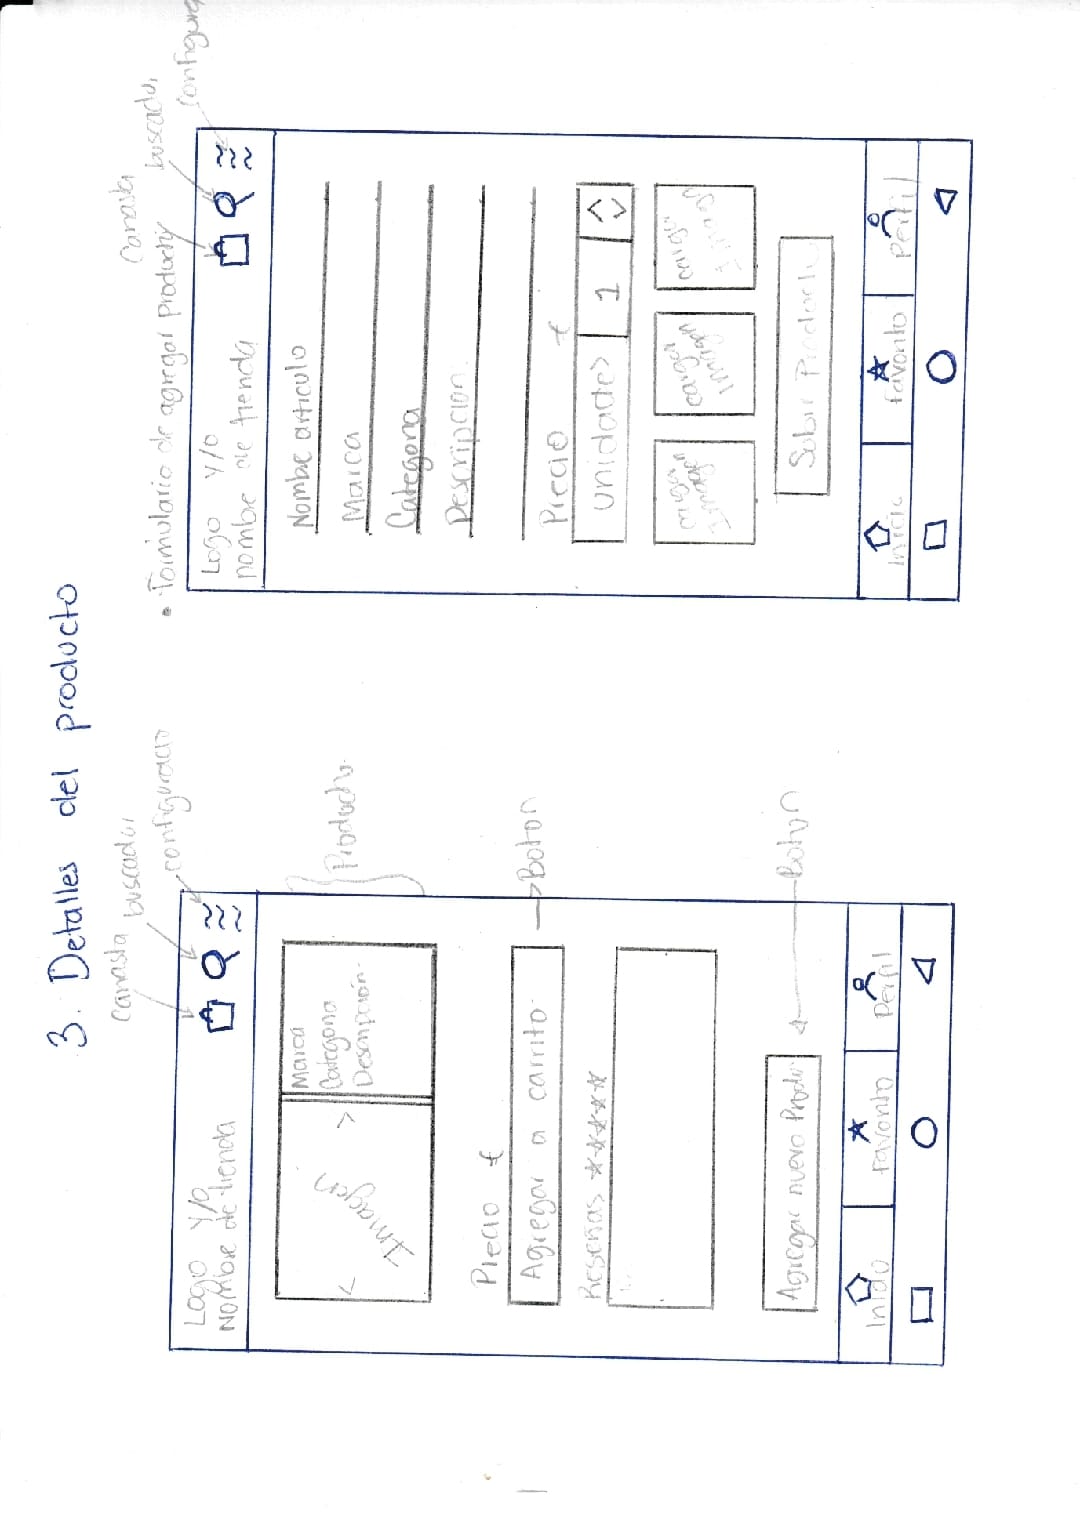 3. Detalles del producto
canasta
buscador
configuracio
Logo y/o
Nombre de tienda
Imagen
Marca
Categoria
Descripción
Producto
Precio €
Agregar a carrito
Boton
Reseñas
Agregar nuevo Produ
Boton
Inicio
Favorito
Perfil
• Formulario de agregar producto
Canasta
buscador
Configura
Logo y/o
nombre de tienda
Nombre articulo
Marca
Categoria
Descripcion
Precio €
unidades 1
cargar Imagen
cargar Imagen
cargar Imagen
Subir Producto
Inicio
Favorito
Perfil